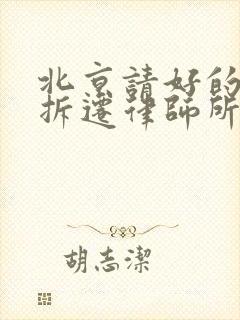 北京請好的
拆遷律師所
胡志潔